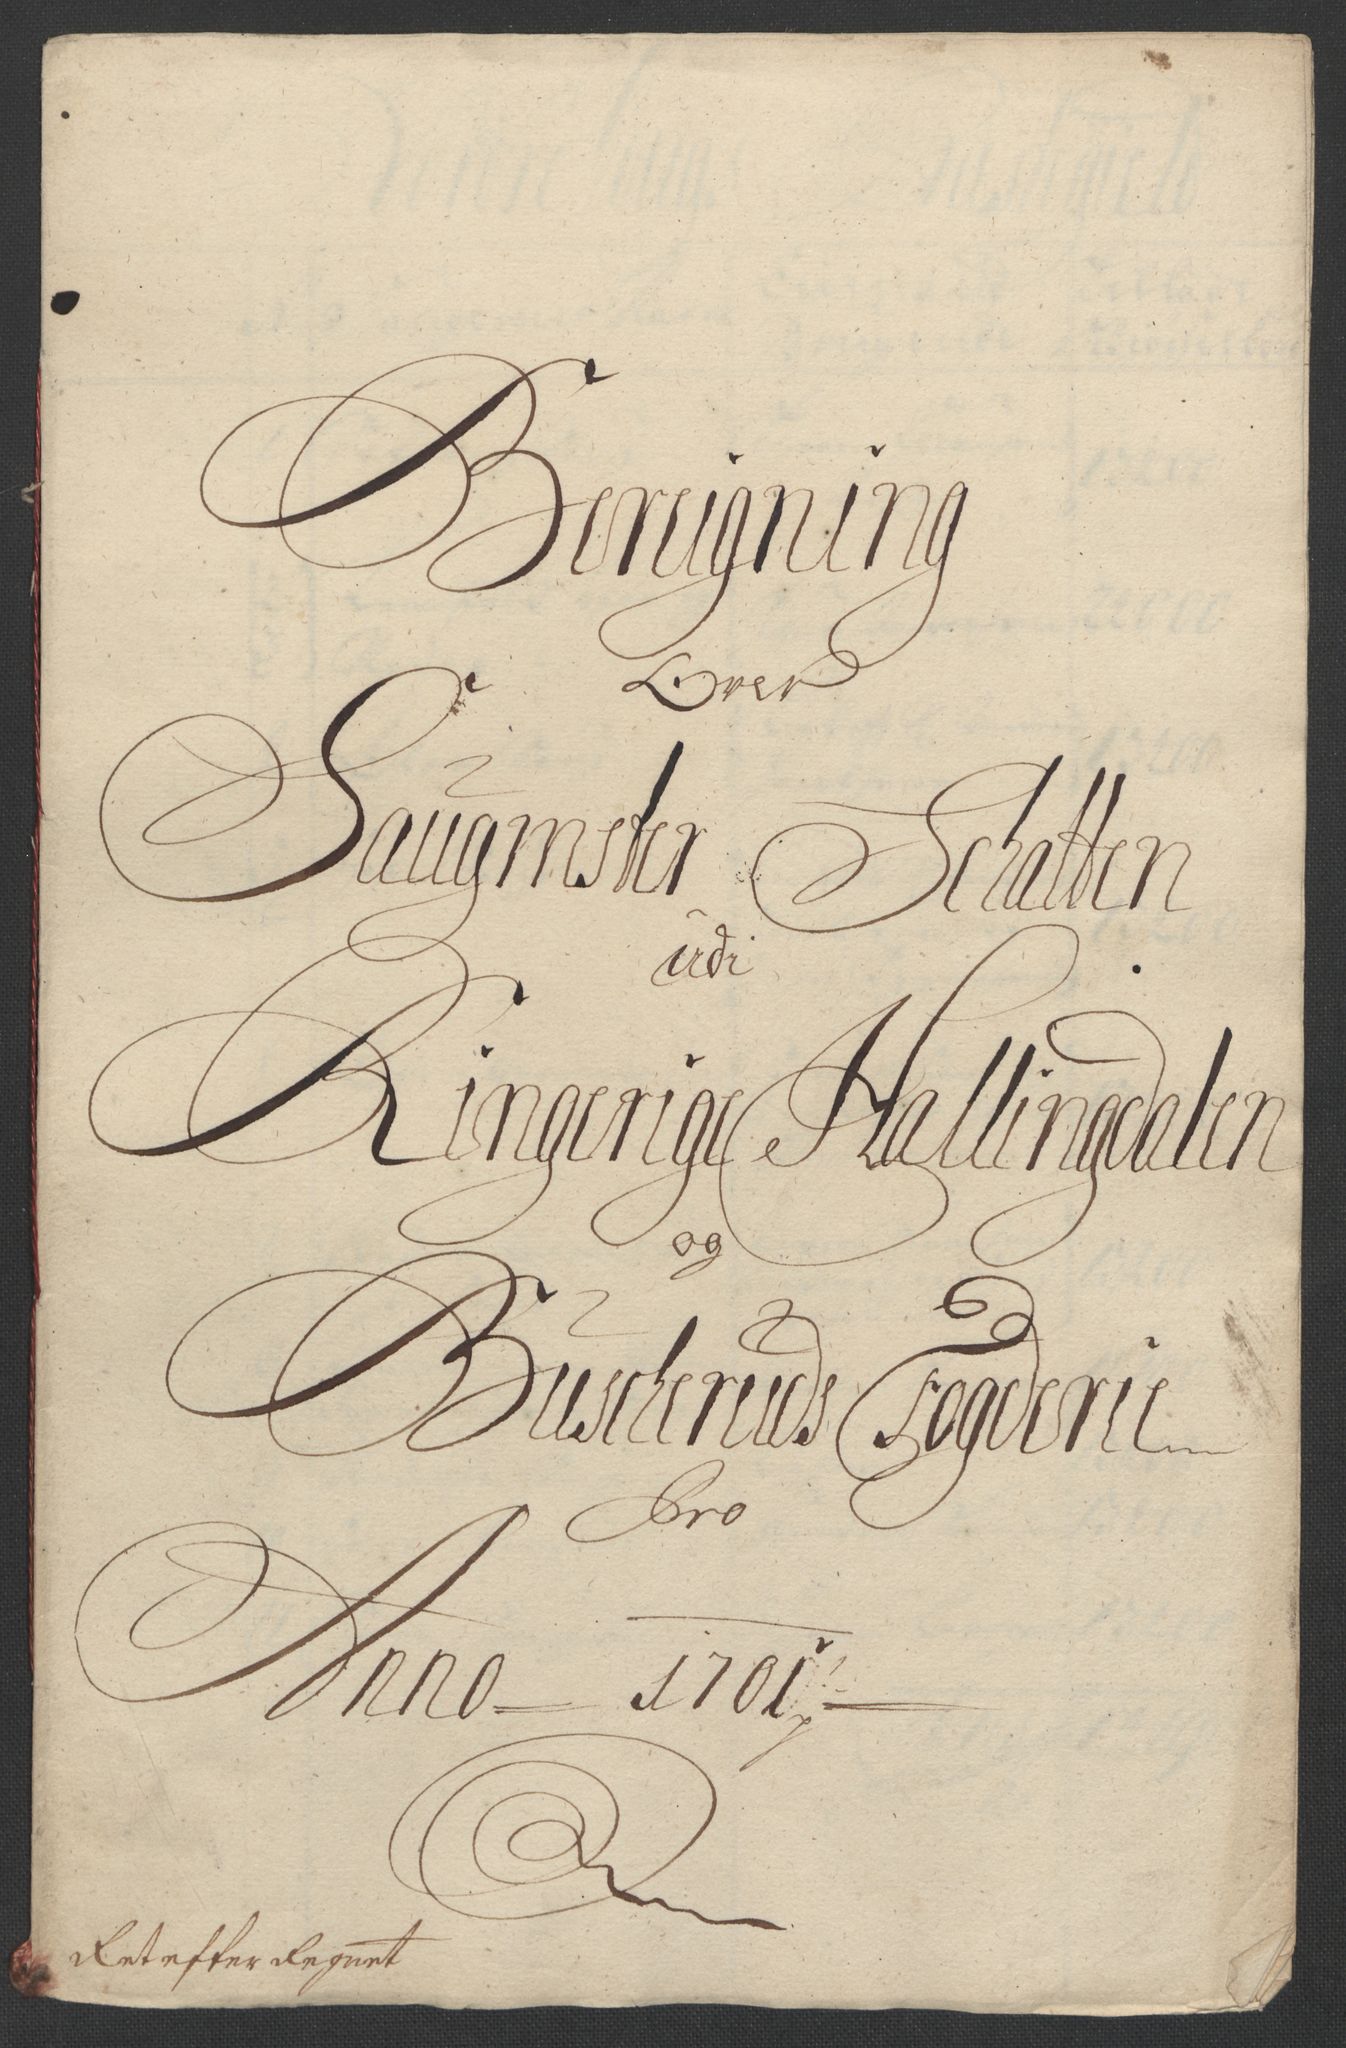 Bereigning
Over
Saugmster Schatten
udi
Ringerige Hallingdalen
og
Buscheruds Fogderie
Pro
Anno 1701
Ret efter Regnet